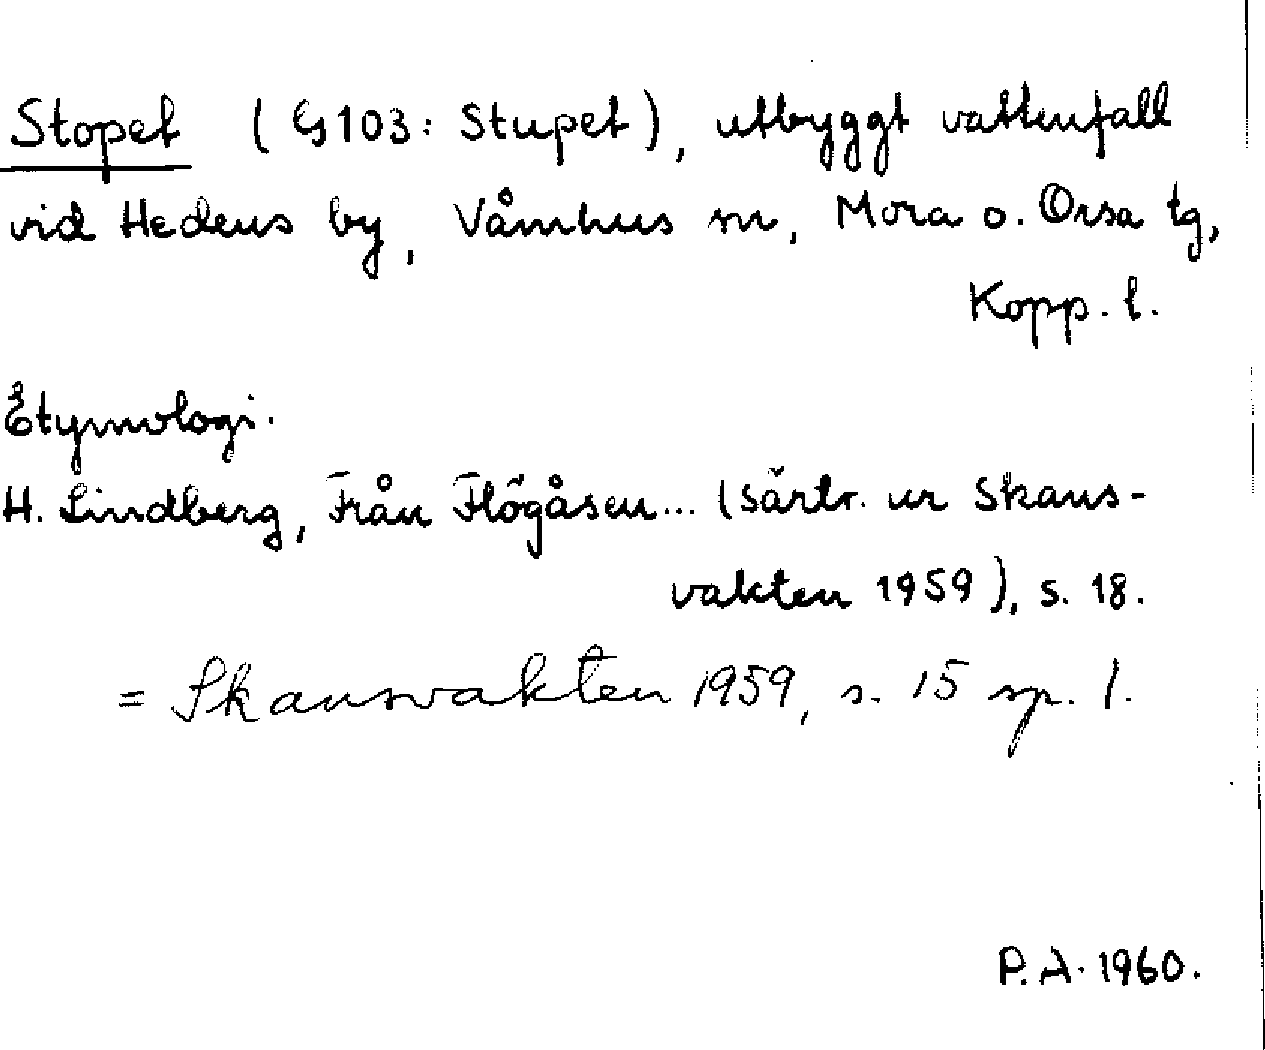 Stopet (G103: Stupet), utbyggt vattenfall
vid Hedens by, Våmhus sn, Mora o. Orsa tg,
Kopp. l.
Etymologi.
H. Lindberg, Från Flögåsen... (särtr. ur Skans-
vakten 1959), s. 18.
= Skansvakten 1959, s. 15 sp. 1.
P.A. 1960.